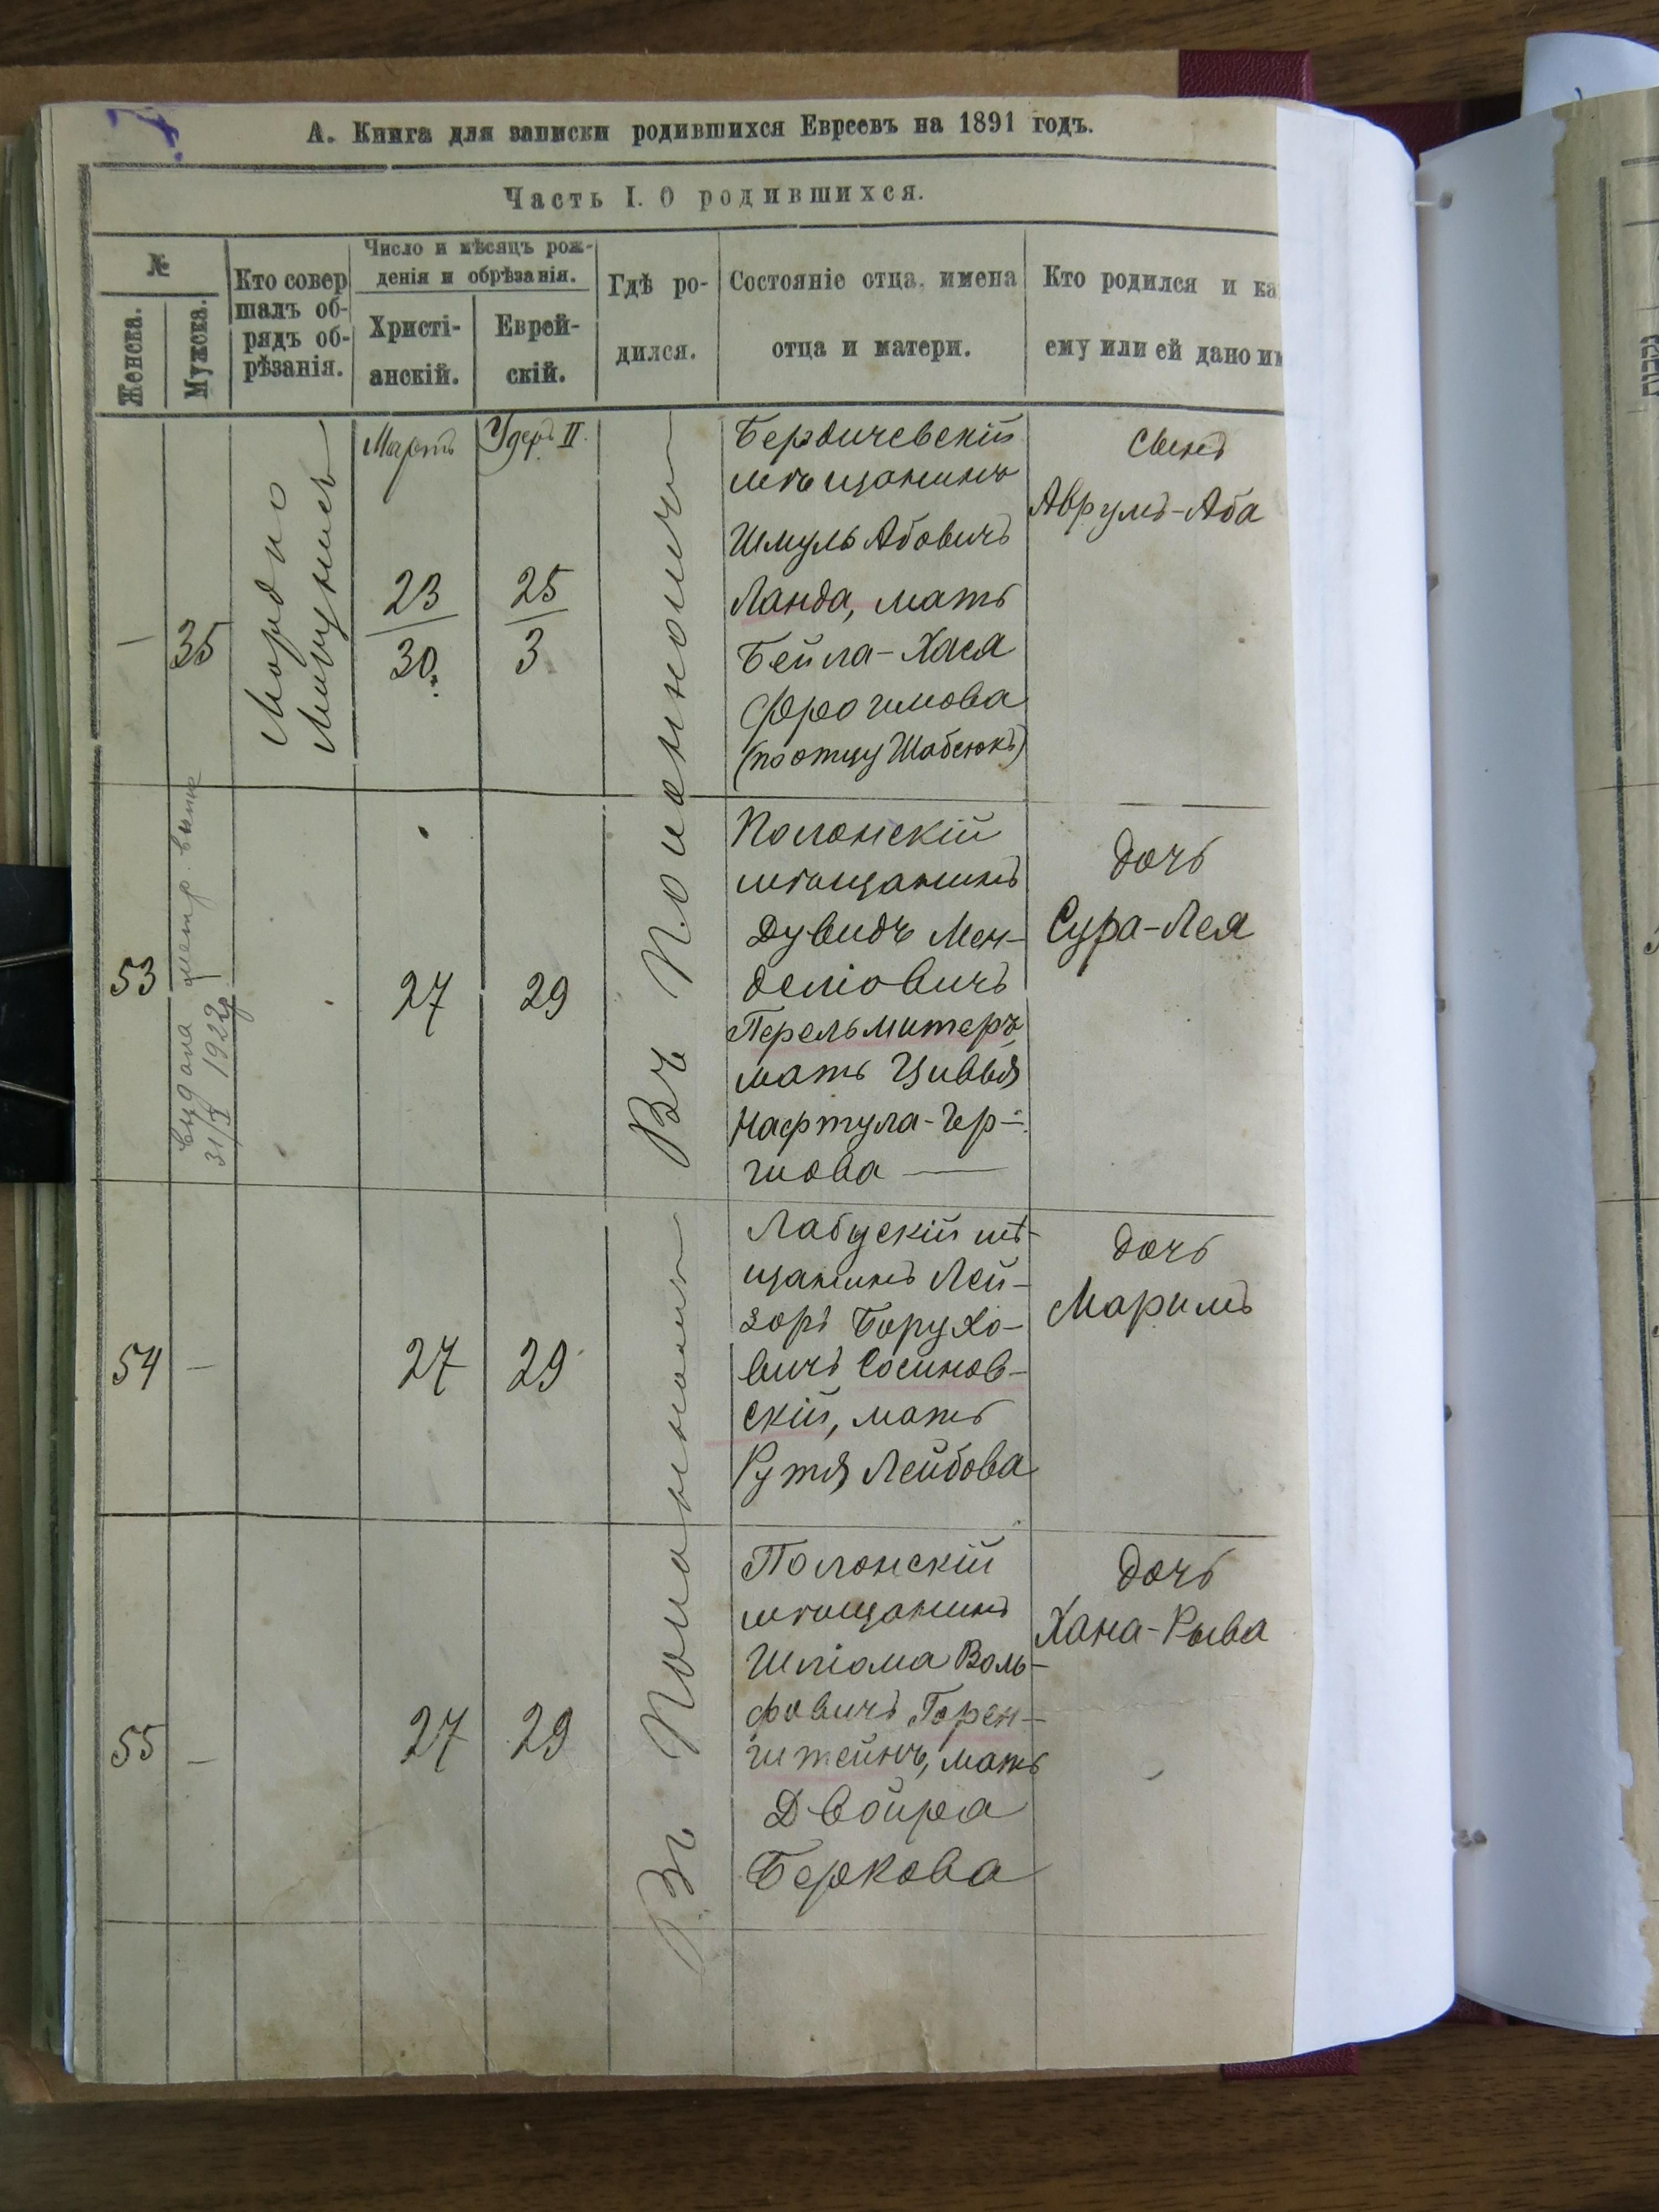 А. Книга для записки родившихся Евреевъ на 1891 годъ.
Часть I. О родившихся.
№
Женска.
Мужска.
Кто совер
шалъ об-
рядъ об-
рѣзанія.
Число и мѣсяцъ рож-
денія и обрѣзанія.
Христі-
анскій.
Еврей-
скій.
Гдѣ ро-
дился.
Состояніе отца, имена
отца и матери.
Кто родился и ка
ему или ей дано им
—
35
Мордко
Мартъ
23
30
Удеръ II.
25
3
Въ Полонномъ
Бердичевскій
мѣщанинъ
Шмуль Абовичъ
Ланда, мать
Бейла-Хася
Фроимова
(по отцу Шабсюкъ)
сынъ
Аврумъ-Аба
53
выдана метр. выпис
31/X 1922 г.
27
29
Полонскій
мѣщанинъ
Дувидъ Мен-
деліовичъ
Перельмитеръ
мать Цивья
Нафтула-Гер-
шова —
дочь
Сура-Лея
54
—
27
29
Въ Полонномъ
Лабунскій мѣ-
щанинъ Лей-
зоръ Борухо-
вичъ Сосинов-
скій, мать
Рутя Лейбова
дочь
Маримъ
55
—
27
29
Полонскій
мѣщанинъ
Шліома Воль-
фовичъ Горен-
штейнъ, мать
Двойра
Беркова
дочь
Хана-Рыва